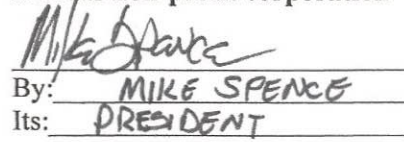 Mike Spence
By: MIKE SPENCE
Its: PRESIDENT